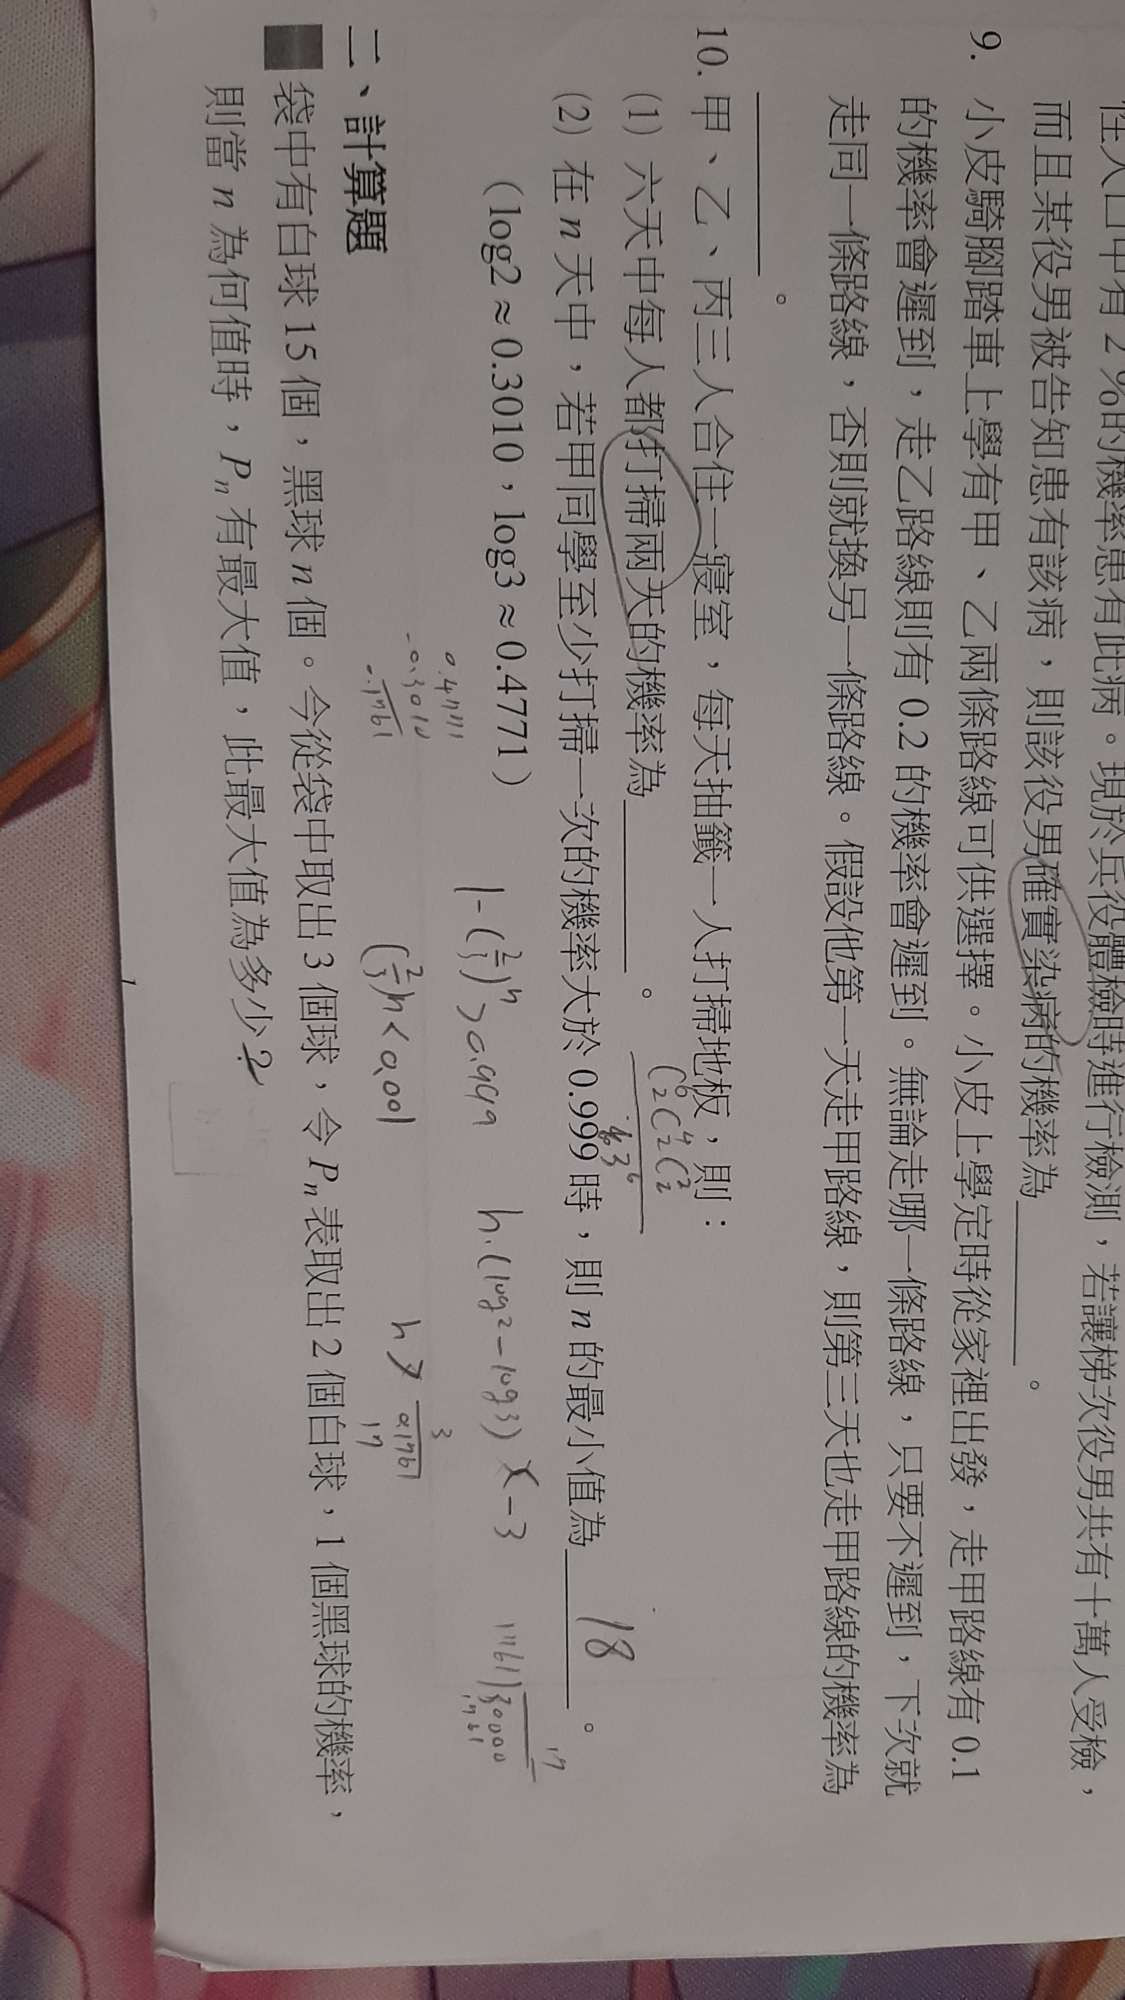 性人口中有 2 %的機率患有此病。現於兵役體檢時進行檢測，若讓梯次役男共有十萬人受檢，
而且某役男被告知患有該病，則該役男確實染病的機率為＿＿＿＿。
9. 小皮騎腳踏車上學有甲、乙兩條路線可供選擇。小皮上學定時從家裡出發，走甲路線有 0.1
的機率會遲到，走乙路線則有 0.2 的機率會遲到。無論走哪一條路線，只要不遲到，下次就
走同一條路線，否則就換另一條路線。假設他第一天走甲路線，則第三天也走甲路線的機率為
＿＿＿＿。
10. 甲、乙、丙三人合住一寢室，每天抽籤一人打掃地板，則：
(1) 六天中每人都打掃兩天的機率為＿＿＿＿。
C⁶₂C⁴₂C²₂
3⁶
(2) 在 n 天中，若甲同學至少打掃一次的機率大於 0.999 時，則 n 的最小值為 18 。
(log2≈0.3010，log3≈0.4771)
1-(2/3)ⁿ>0.999
n·(log2-log3)<-3
1761)30000
17
1761
0.4771
-0.3010
0.1761
(2/3)n<0.001
n>3/0.1761
17
二、計算題
袋中有白球 15 個，黑球 n 個。今從袋中取出 3 個球，令 Pₙ 表取出 2 個白球，1 個黑球的機率，
則當 n 為何值時，Pₙ 有最大值，此最大值為多少？